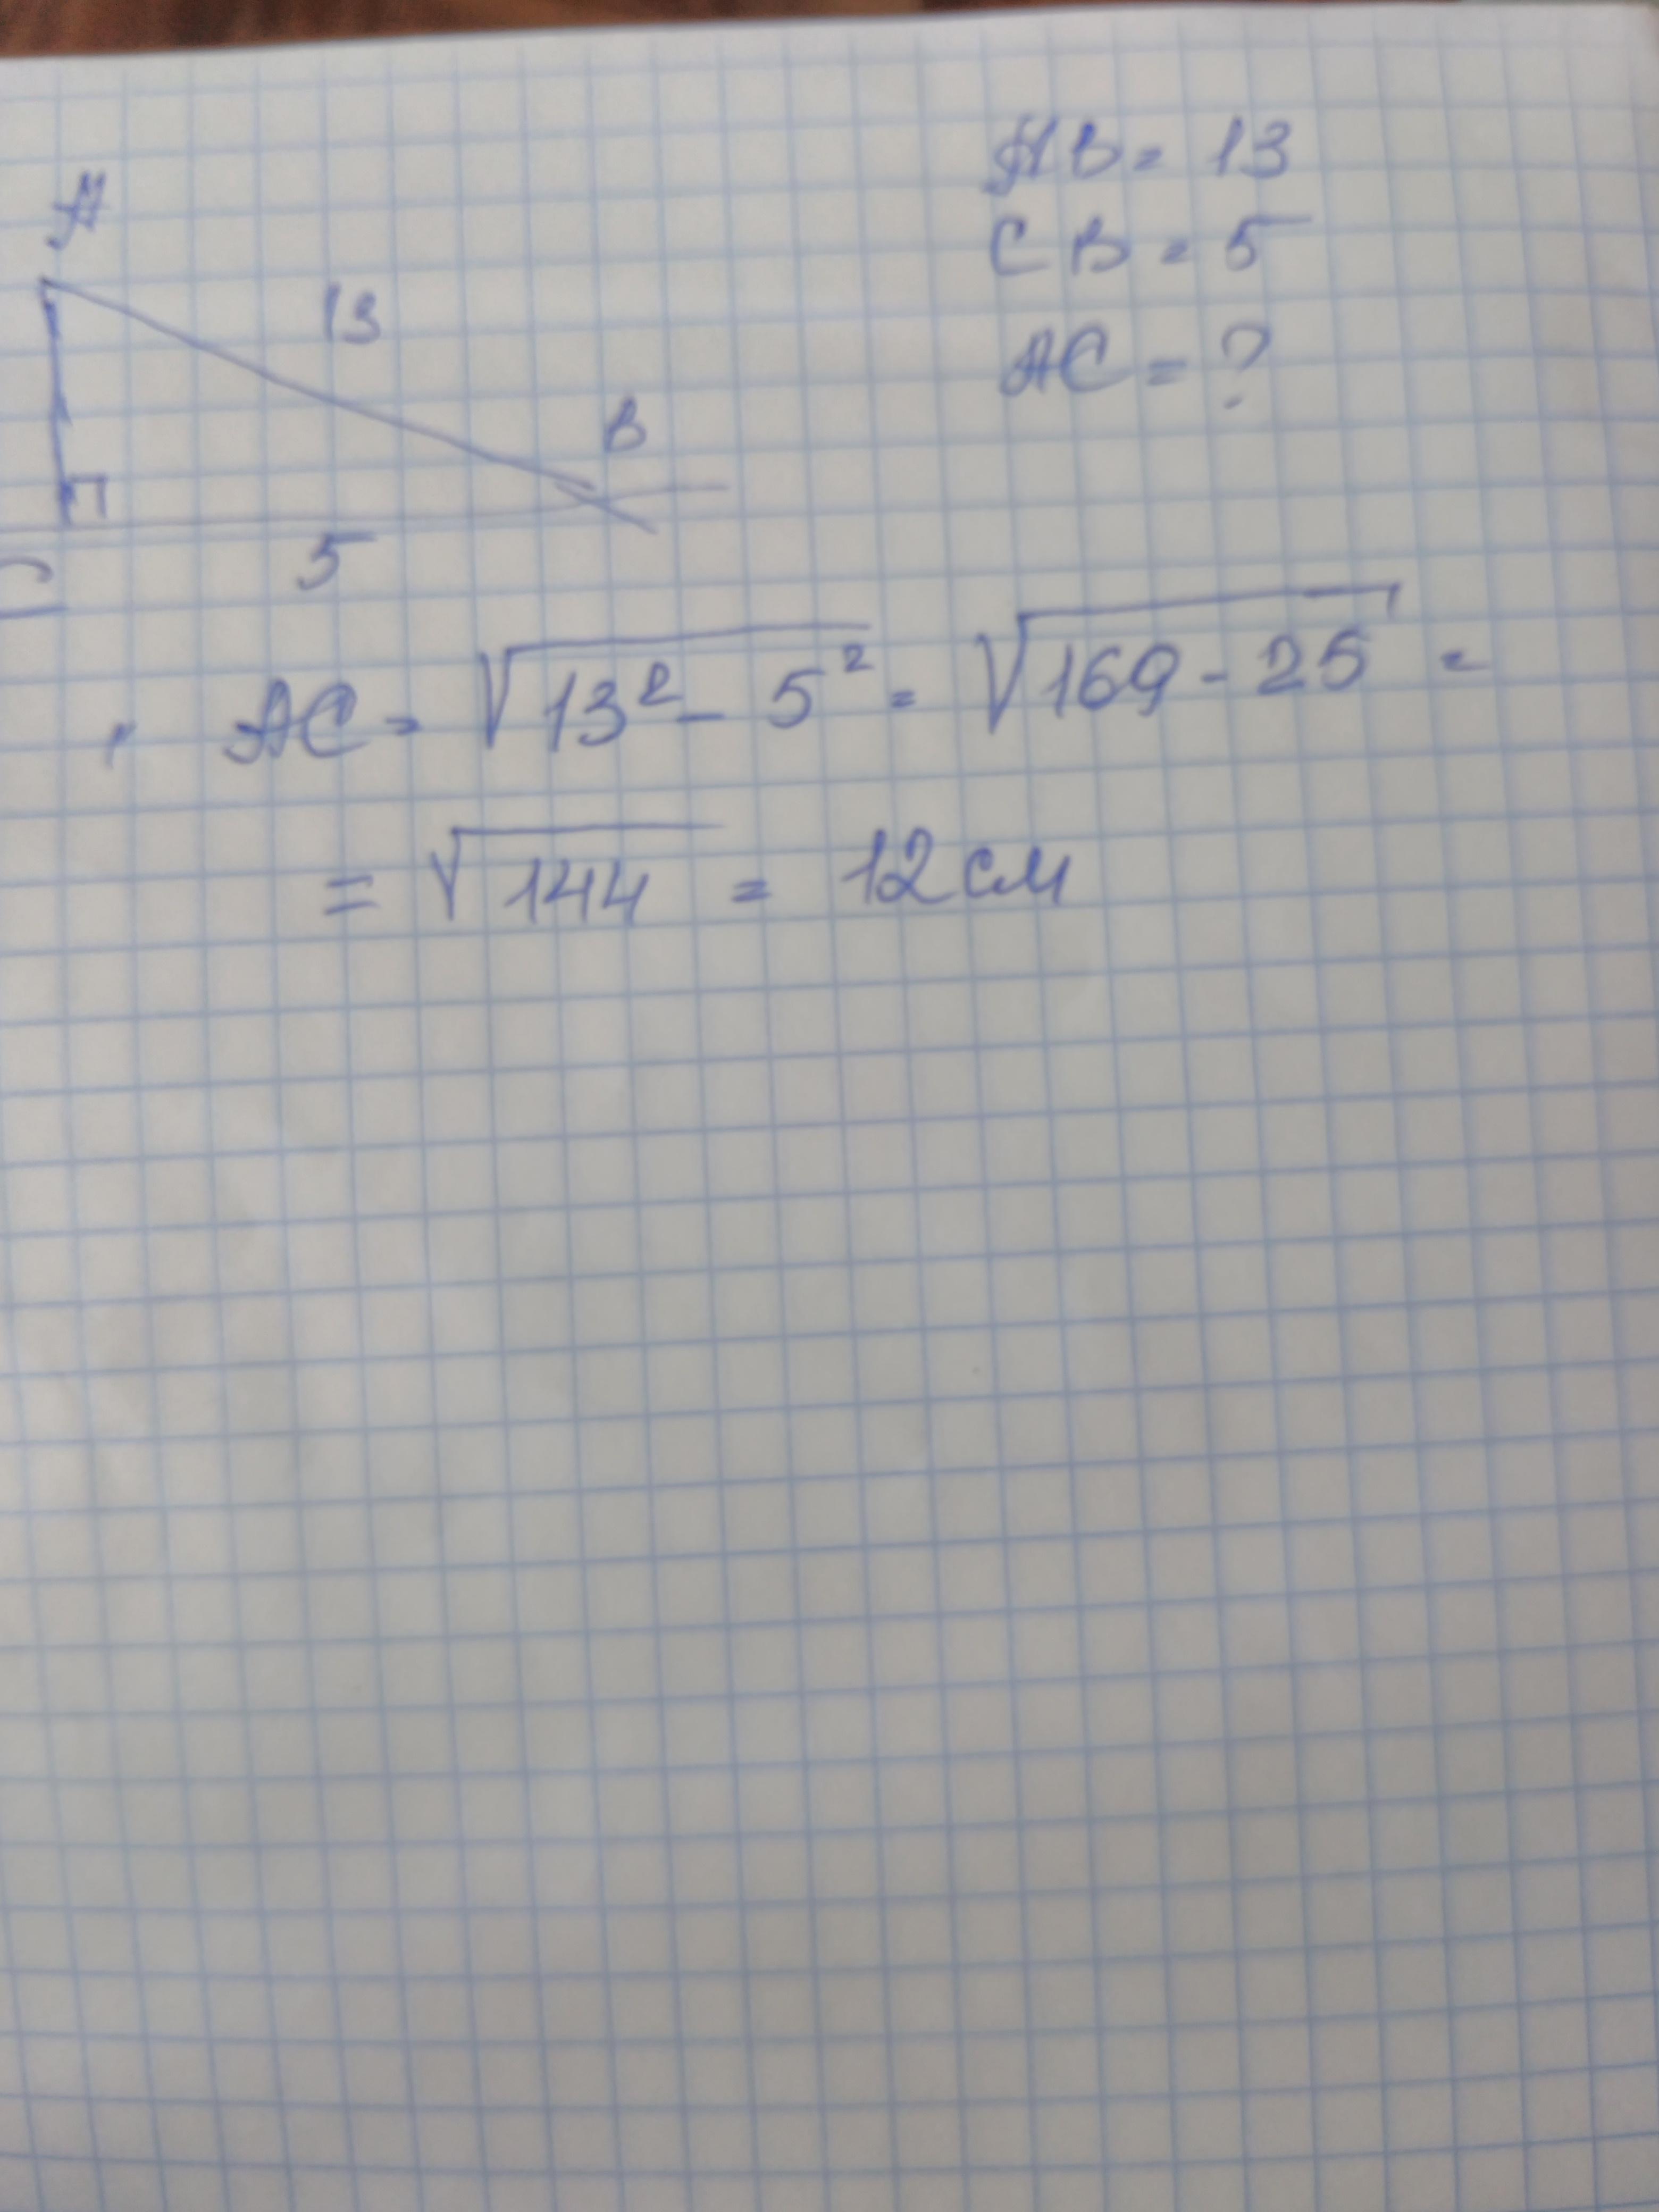 A
13
B
C
5
AB = 13
CB = 5
AC = ?
AC = √13² - 5² = √169 - 25 =
= √144 = 12 см